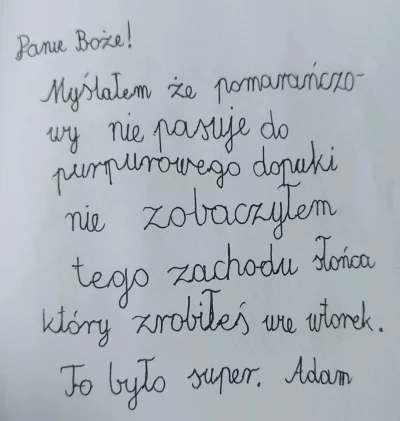 Panie Boże!
Myślałem że pomarańczo-
wy nie pasuje do
purpurowego dopuki
nie zobaczyłem
tego zachodu słońca
który zrobiłeś we wtorek.
To było super. Adam